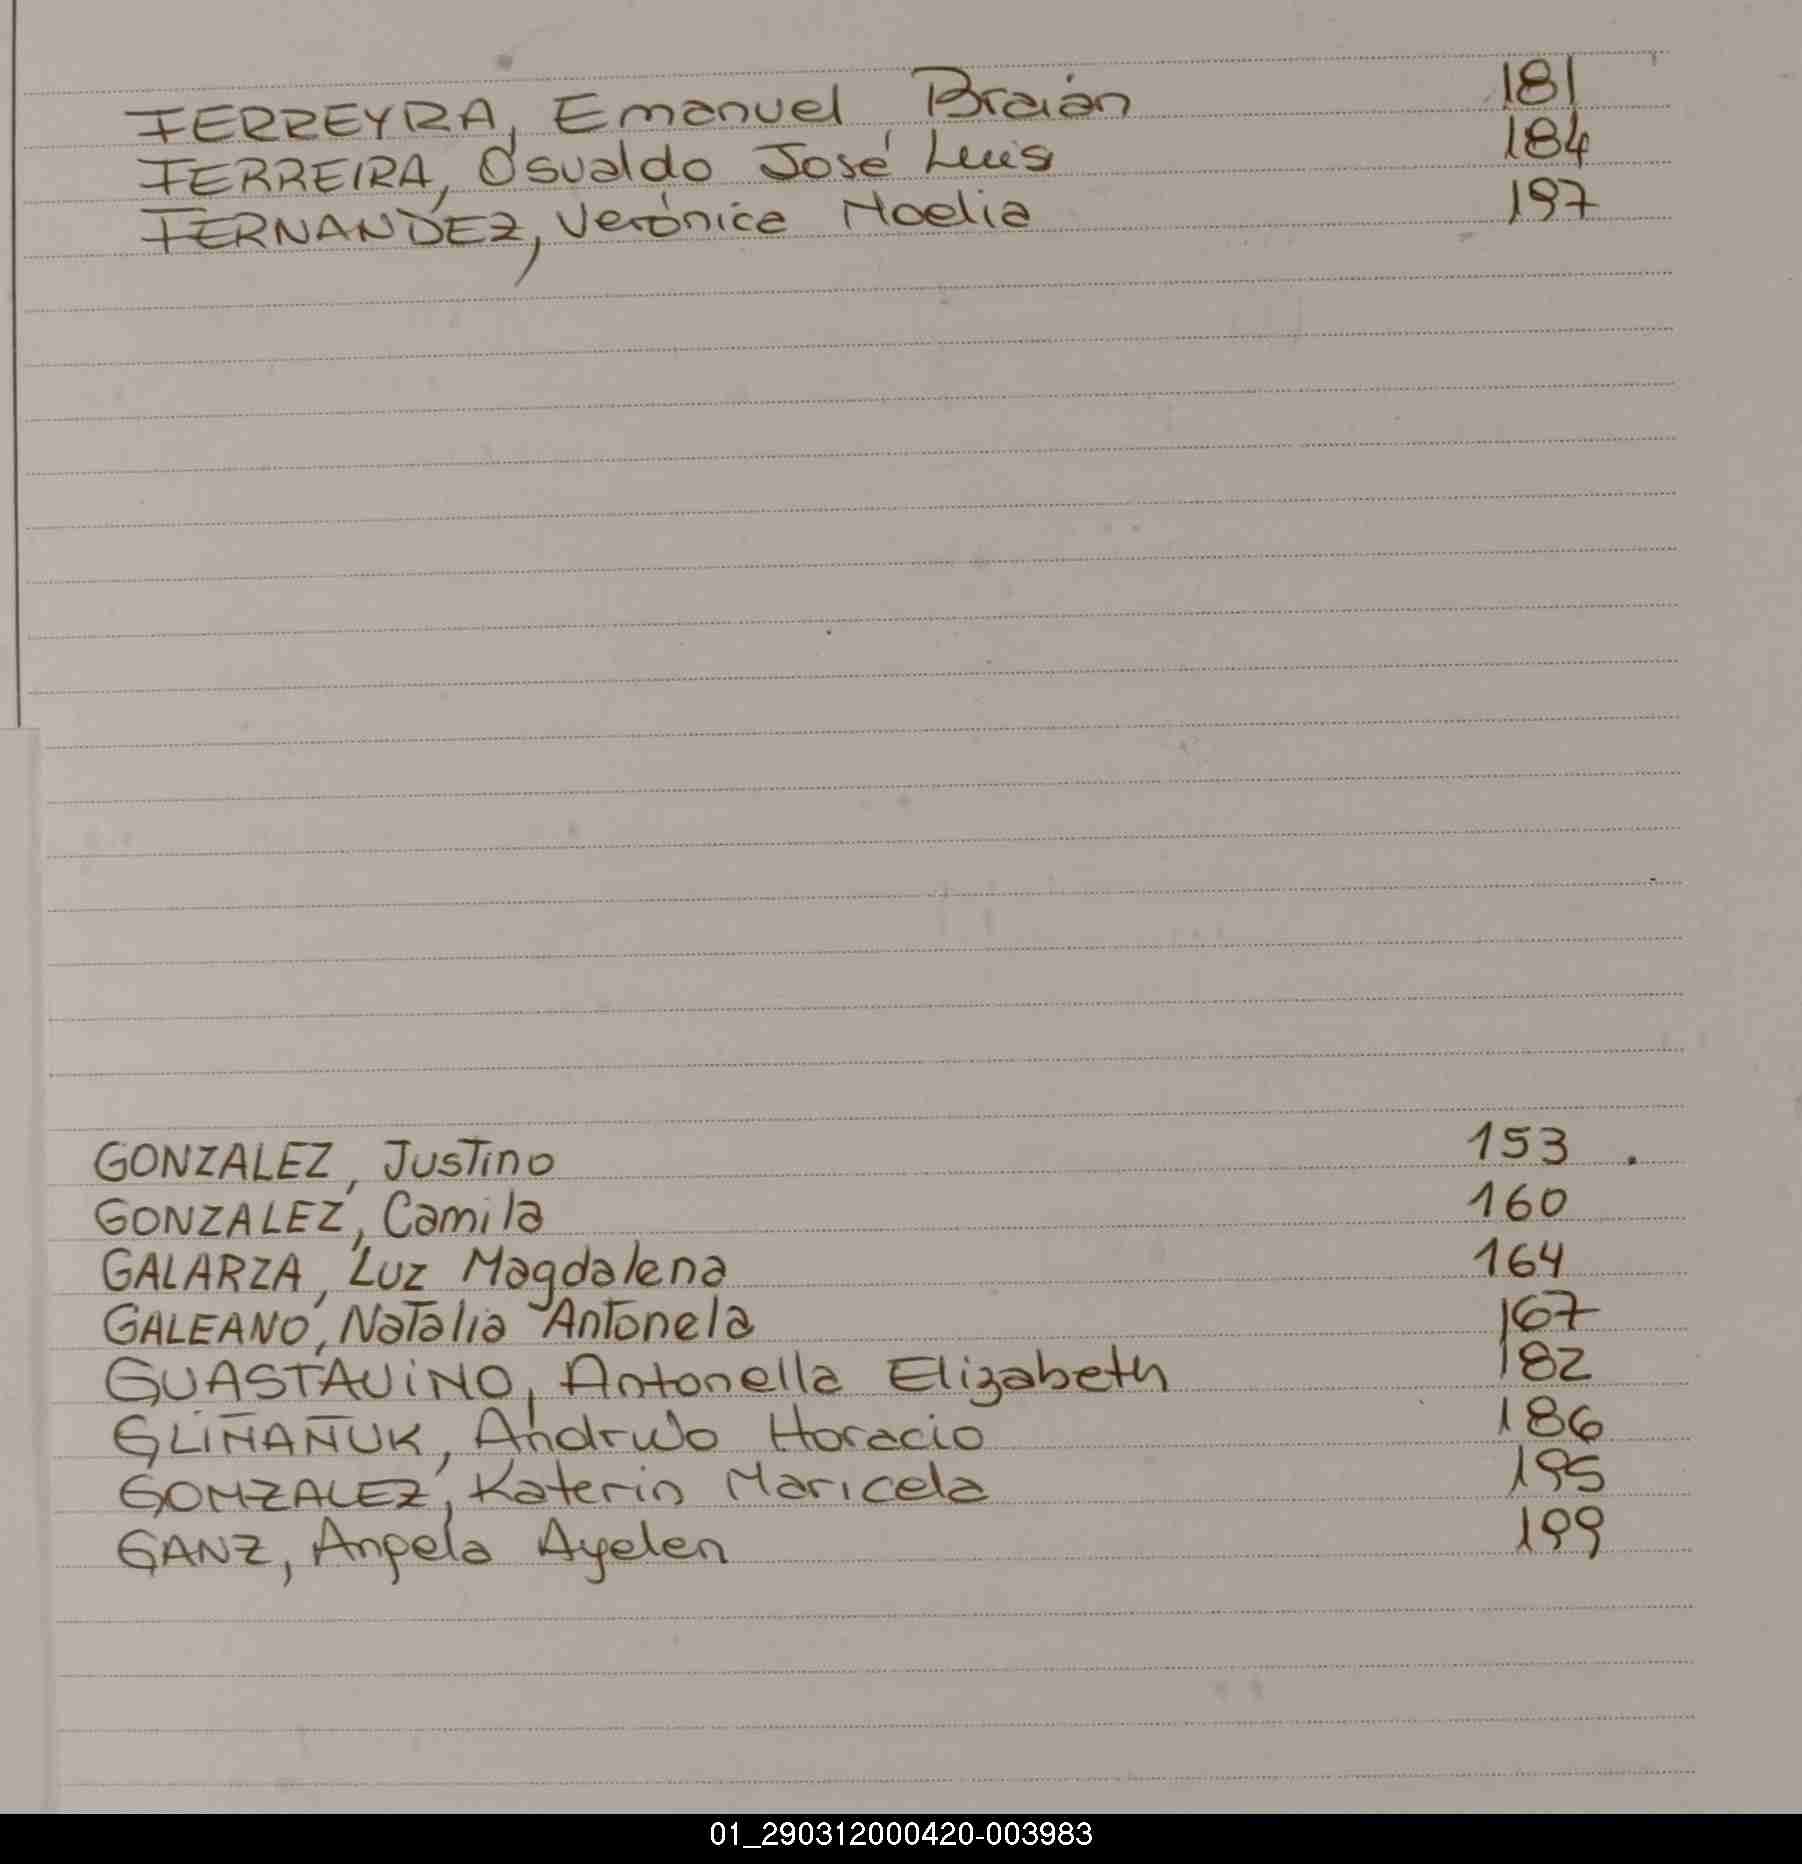 FERREYRA, Emanuel Braian 181
FERREIRA, Osvaldo José Luis 184
FERNANDEZ, Verónica Noelia 197
GONZALEZ, Justino 153
GONZALEZ, Camila 160
GALARZA, Luz Magdalena 164
GALEANO, Natalia Antonela 167
GUASTAViNO, Antonella Elizabeth 182
GLIÑAÑUK, Horacio 186
GONZALEZ, Katerin Maricela 195
GANZ, Angela Ayelen 199
01_290312000420-003983